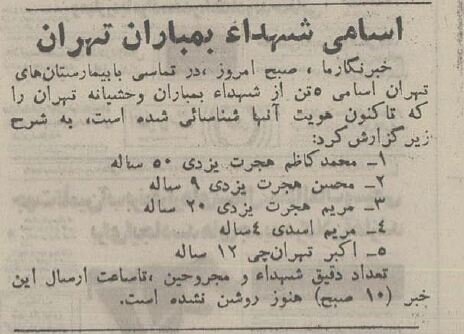 اسامی شهداء بمباران تهران
خبرنگارما ، صبح امروز ،در تماسی بابیمارستان‌های
تهران اسامی ۵تن از شهداء بمباران وحشیانه تهران را
که تاکنون هویت آنها شناسائی شده است، به شرح
زیرگزارش‌کرد:
۱ـ محمدکاظم هجرت یزدی ۵۰ ساله
۲ـ محسن هجرت یزدی ۹ ساله
۳ـ مریم هجرت یزدی ۲۰ ساله
۴ـ مریم اسدی ۴ساله
۵ـ اکبر تهران‌چی ۱۲ ساله
تعداد دقیق شهداء و مجروحین ،تاساعت ارسال این
خبر (۱۰ صبح) هنوز روشن نشده است.